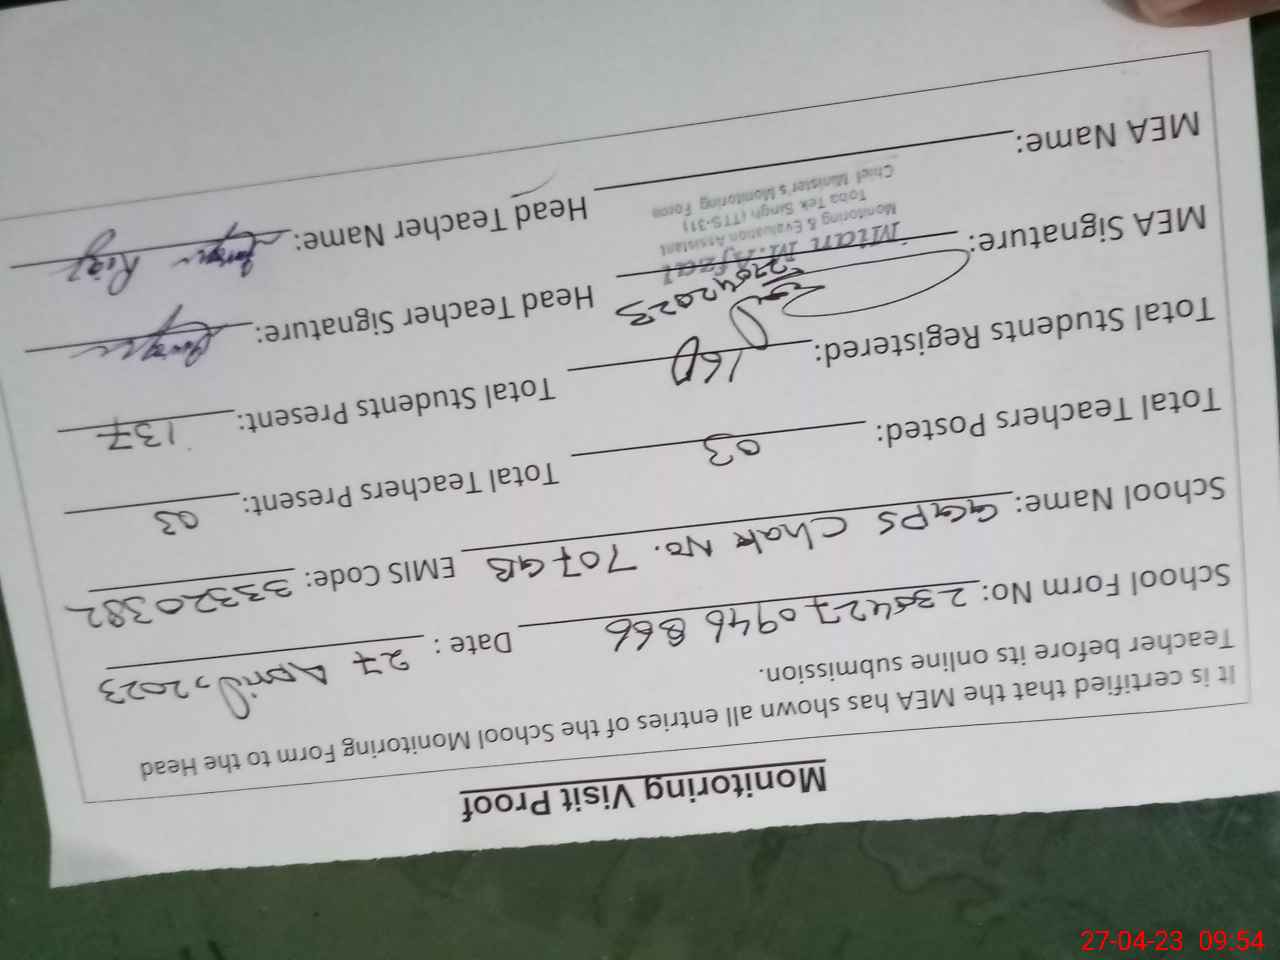 Monitoring Visit Proof
It is certified that the MEA has shown all entries of the School Monitoring Form to the Head
Teacher before its online submission.
School Form No: 230427 0946 866 Date : 27 April, 2023
School Name: GGPS Chak No. 707 GB EMIS Code: 33320382
Total Teachers Posted: 03 Total Teachers Present: 03
Total Students Registered: 160 Total Students Present: 137
MEA Signature: 27042023 Head Teacher Signature:
Mian M. Afzal
Monitoring & Evaluation Assistant
Toba Tek Singh (TTS-31)
Chief Minister's Monitoring Force
MEA Name: Head Teacher Name: Riaz
27-04-23 09:54